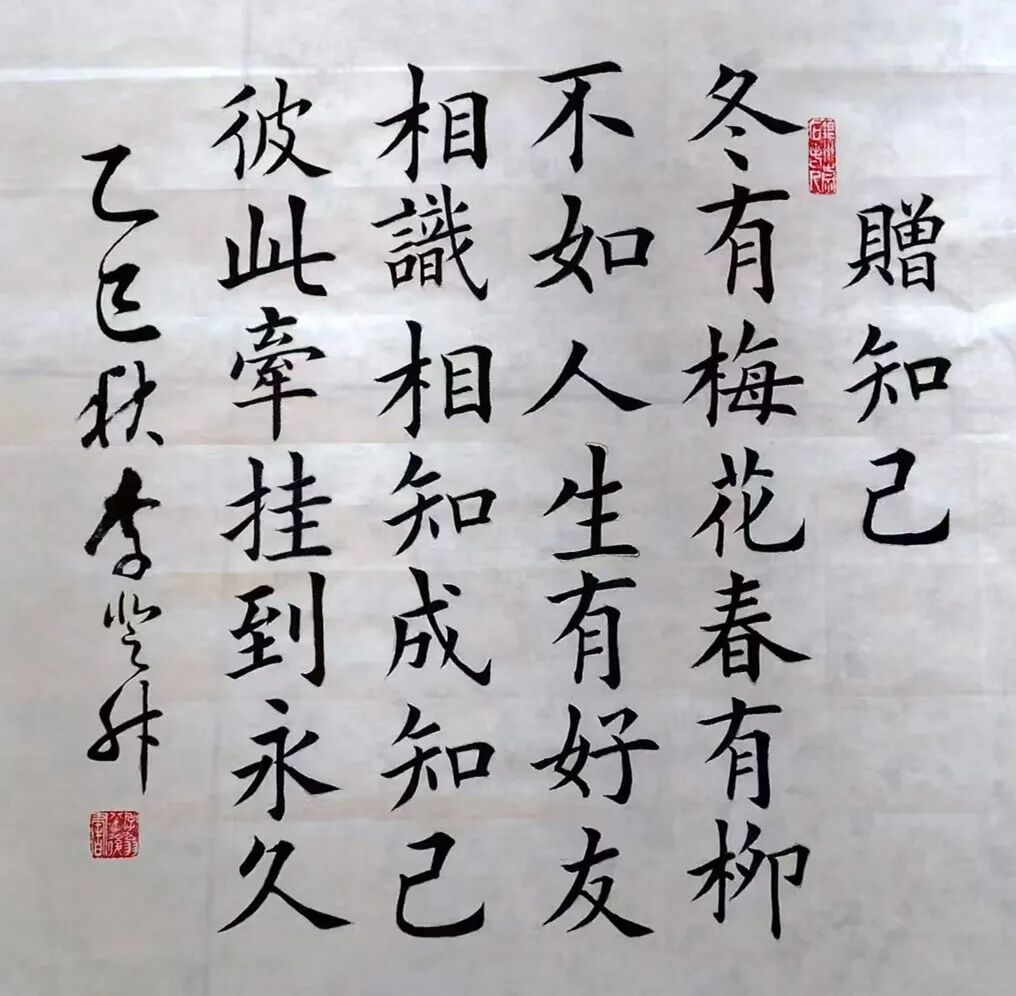 贈知己
冬有梅花春有柳
不如人生有好友
相識相知成知己
彼此牽挂到永久
乙巳秋李登升